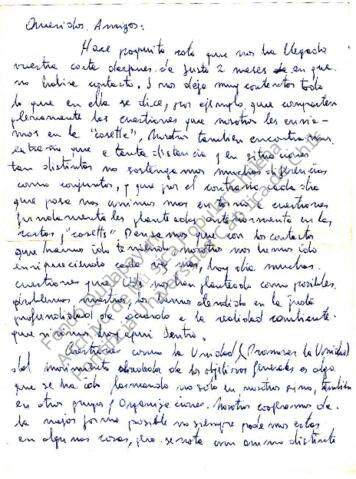 Queridos Amigos:
Hace poquito rato que nos ha llegado
vuestra carta despues de justo 2 meses de en que
no hubiese contacto. I nos dejo muy contentos todo
lo que en ella se dice, por ejemplo que comparten
plenamente las cuestiones que nosotros les enviamos
en la "cosette". Nosotros tambien encontramos
extraño que a tanta distancia y en situaciones
tan distintas no sostengamos muchas diferencias
como conjuntos, y que por el contrario cada dia
que pasa nos unimos mas en torno a cuestiones
planteadas anteriormente en las
cartas, "cosette". Pensamos que con los contactos
que hemos ido teniendo, nosotros nos hemos ido
enriqueciendo cada dia mas, hoy dia muchas
cuestiones que Uds nos han planteado como posibles
problemas nuestros, los hemos atendido en la justa
profundidad de acuerdo a la realidad cambiante
que vivimos hoy aqui dentro.
Cuestiones como la Unidad, (Promover la Unidad)
del movimiento alrededor de los objetivos generales es algo
que se ha ido formando no solo en nosotros sino, tambien
en otros grupos y Organizaciones. Nosotros cooperamos de
la mejor forma posible no siempre podemos estar
en algunas cosas, pero se nota un animo distinto